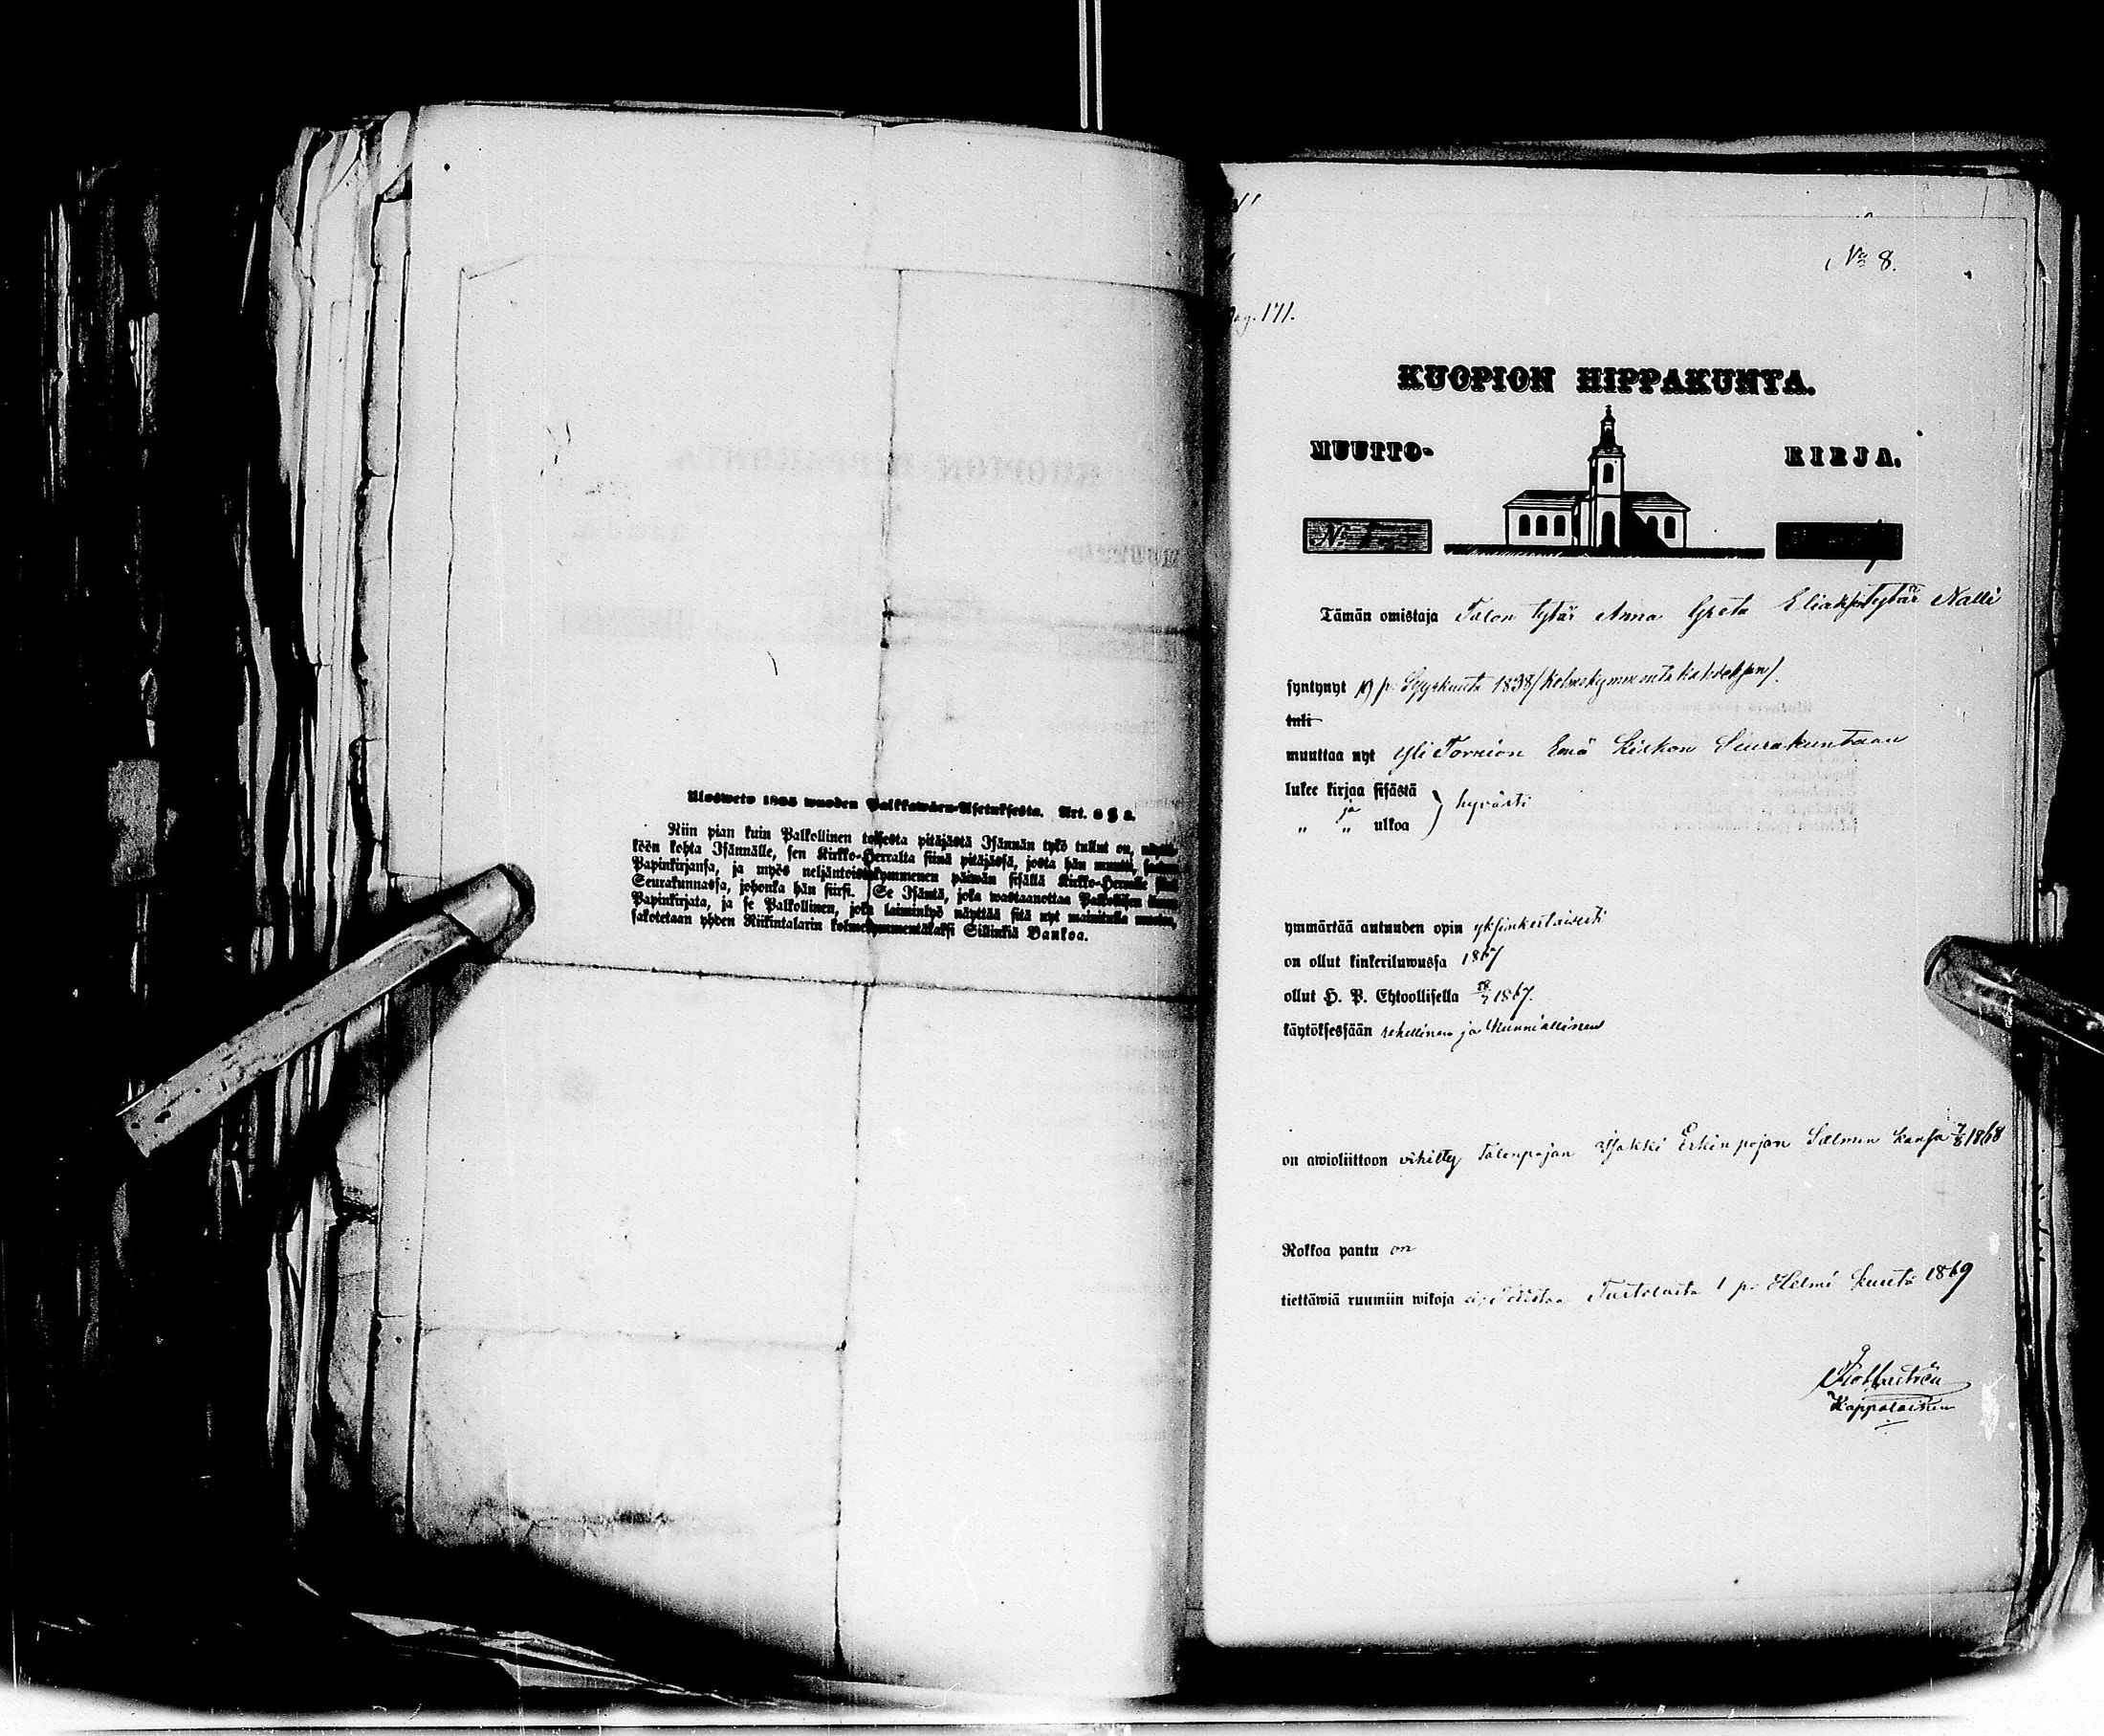 Ulosweto 1805 wuoden Palkkawäen-Asetuksesta. Art. 6 § 8.
Niin pian kuin Palkollinen toisesta pitäjästä Isännän tykö tullut on, näyttä-
köön kohta Isännälle, sen Kirkko-Herralta siinä pitäjässä, josta hän muutti, saadun
Papinkirjansa, ja myös neljäntoistakymmenen päiwän sisällä Kirkko-Herralle siinä
Seurakunnassa, johonka hän siirsi. Se Isäntä, joka wastaanottaa Palkollisen ilman
Papinkirjata, ja se Palkollinen, joka laiminlyö näyttää sitä nyt mainitulla muodon,
sakotetaan yhden Riikintalarin kolmekymmentäkaksi Sillinkiä Bankoa.
No 8.
pag. 171.
KUOPION HIPPAKUNTA.
MUUTTO- KIRJA.
N:
Tämän omistaja Talon tytär Anna Greta Eliaksentytär Nalli
syntynyt 19 p. Syyskuuta 1838 /kolmekymmentä kahdeksan/.
tuli
muuttaa nyt Yli Tornion Emä Kirkon Seurakuntaan
lukee kirjaa sisästä
ja } hyvästi
" " ulkoa
ymmärtää autuuden opin yksinkertaisesti
on ollut kinkeriluwussa 1867
ollut H. P. Ehtoollisella 1867.
käytöksessään rehellinen ja kunniallinen
on awioliittoon vihitty Talonpojan Isakki Erkinpojan Salmen kansa 1868
Rokkoa pantu on
tiettäwiä ruumiin wikoja ei; Turtolasta 1 p. Helmi kuuta 1869
Kappalainen